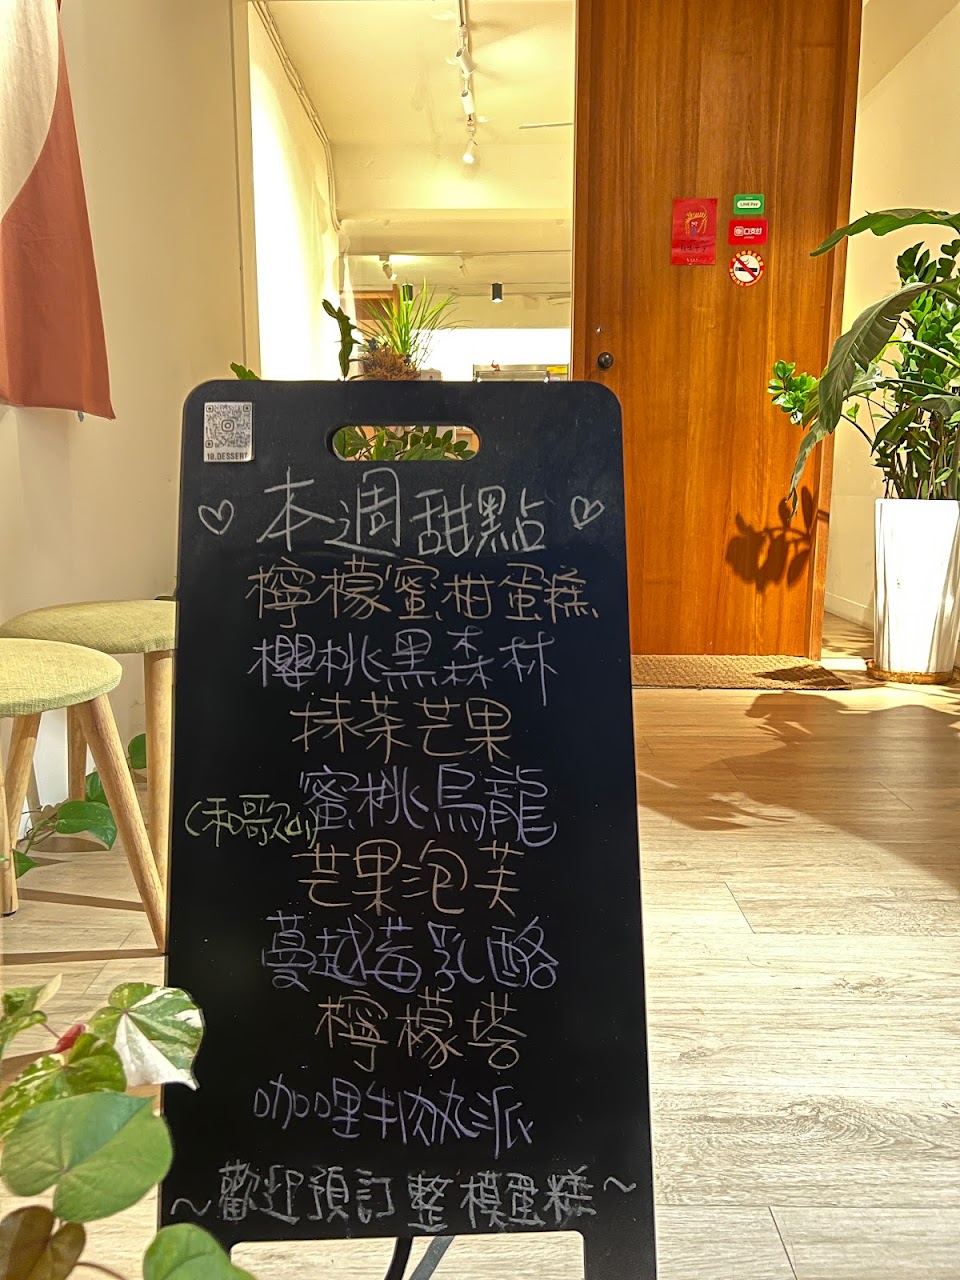 LINE Pay
街口支付
18.DESSERT
♡本週甜點♡
檸檬蜜柑蛋糕
櫻桃黑森林
抹茶芒果
蜜桃烏龍
芒果泡芙
蔓越莓乳酪
檸檬塔
咖哩牛肉丸派
~歡迎預訂整模蛋糕~